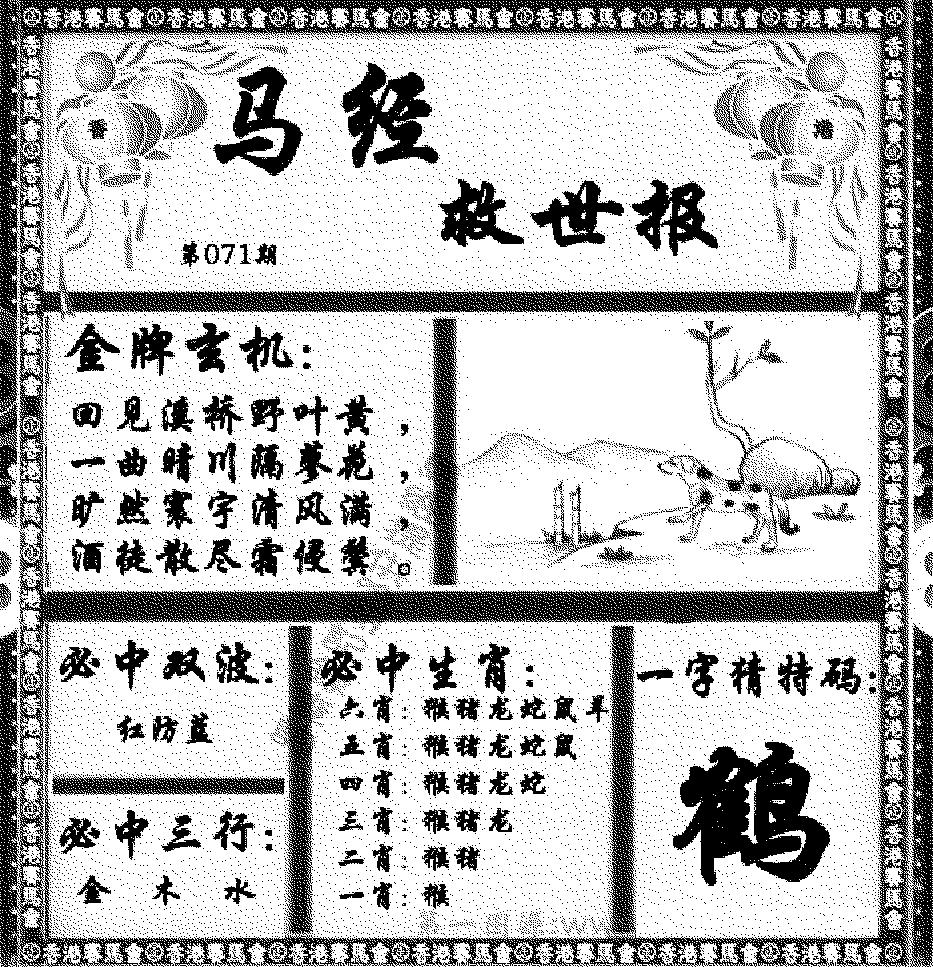 香港賽馬會香港賽馬會香港賽馬會香港賽馬會香港賽馬會香港賽馬會香港賽馬會
香
港
马经
救世报
第071期
金牌玄机:
回见溪桥野叶黄,
一曲晴川隔蓼花,
旷然寰宇清风满,
酒徒散尽霜侵鬓。
必中双波:
红防蓝
必中三行:
金 木 水
必中生肖:
六肖: 猴猪龙蛇鼠羊
五肖: 猴猪龙蛇鼠
四肖: 猴猪龙蛇
三肖: 猴猪龙
二肖: 猴猪
一肖: 猴
一字猜特码:
鹤
香港賽馬會香港賽馬會香港賽馬會香港賽馬會香港賽馬會香港賽馬會香港賽馬會